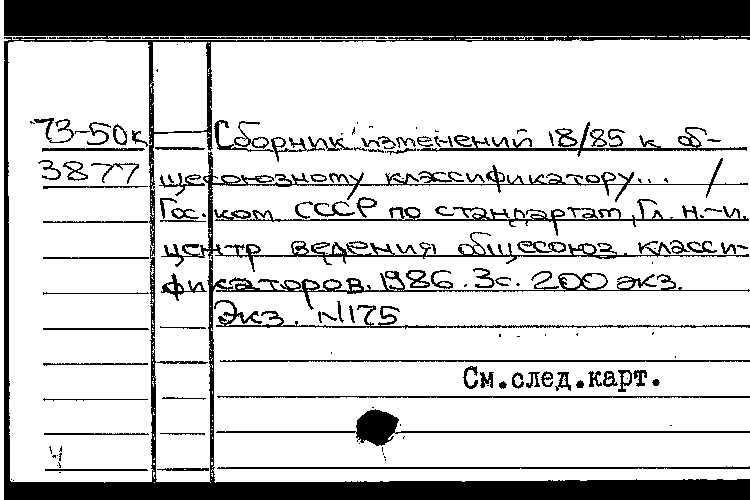 73-50к — Сборник изменений 18/85 к об-
3877 щесоюзному классификатору... /
Гос. ком. СССР по стандартам, Гл. н.-и.
центр ведения общесоюз. класси-
фикаторов. 1986. 3с. 200 экз.
Экз. №175
См.след.карт.
Ч